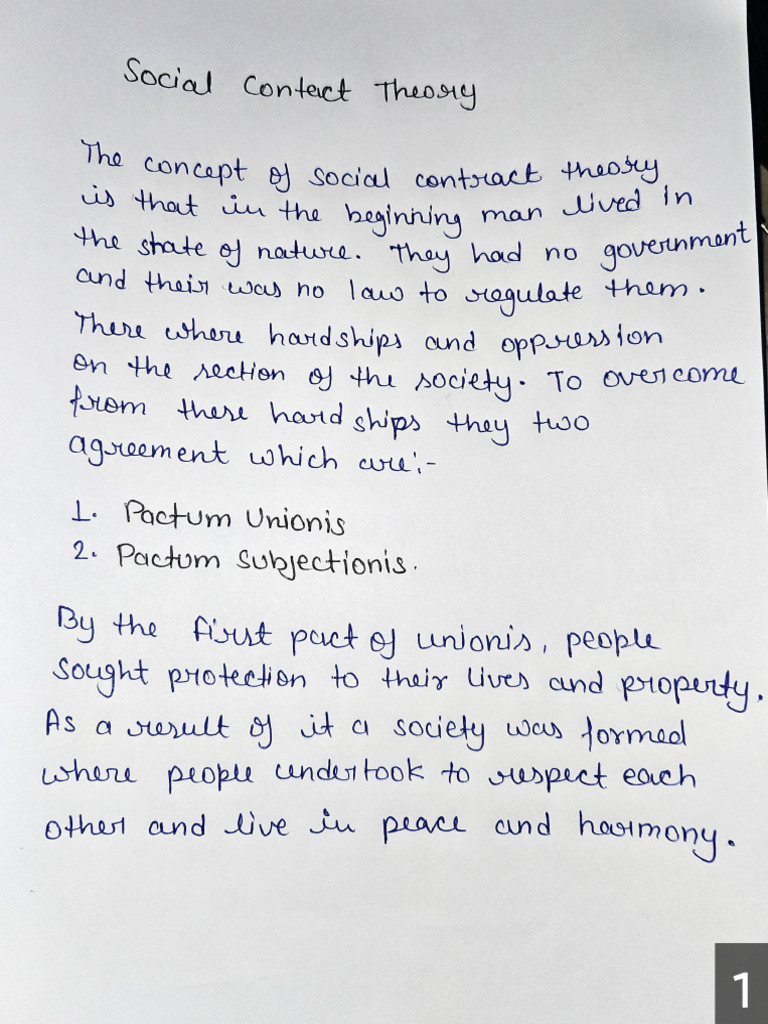 Social Contact Theory
The concept of social contract theory
is that in the beginning man lived in
the state of nature. They had no government
and their was no law to regulate them.
There where hardships and oppression
on the section of the society. To overcome
from these hardships they two
agreement which are:-
1. Pactum Unionis
2. Pactum Subjectionis.
By the first pact of unionis, people
sought protection to their lives and property.
As a result of it a society was formed
where people undertook to respect each
other and live in peace and harmony.
1